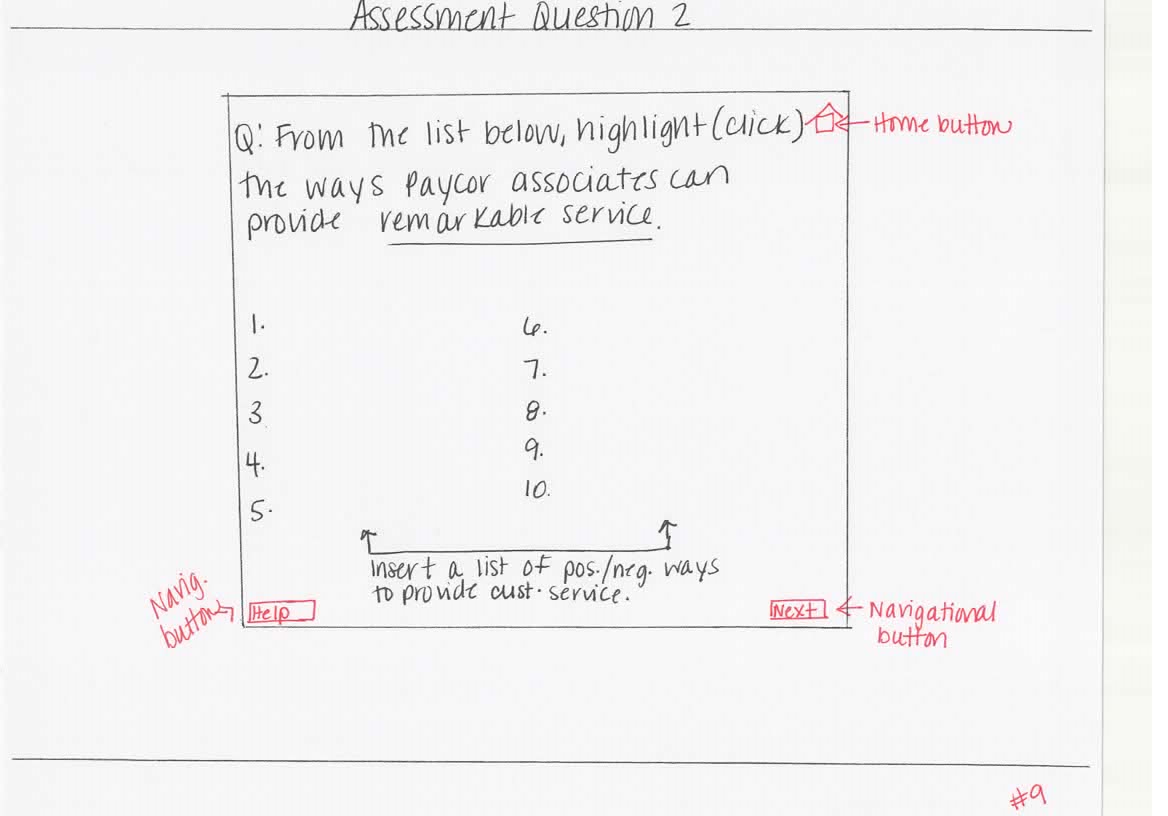 Assessment Question 2
Q: From the list below, highlight (click)
Home button
the ways Paycor associates can
provide remarkable service.
1.
2.
3
4.
5.
6.
7.
8.
9.
10.
Insert a list of pos./neg. ways
to provide cust. service.
Navig.
button
Help
Next
Navigational
button
#9